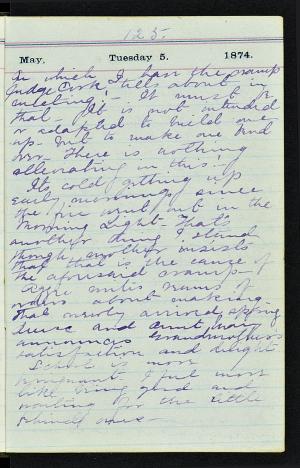 125.
May, Tuesday 5. 1874.
in which I have the cramp
Judge Kirk tells about in
meeting! - It must be
that - It is not intended
or adapted to build one
up - but to make one bend
over. There is nothing
alleviating in this!
Its cold getting up
early mornings since
the fire went out in the
morning light - That's
another thing I stand
though another insists
that that is the cause of
the aforesaid cramp -
writes reams of
orders about making
that newly arrived spring
and aunt
announces Grandmothers
satisfaction and delight -
School is most
I feel most
like being glad and
for the little
ones -